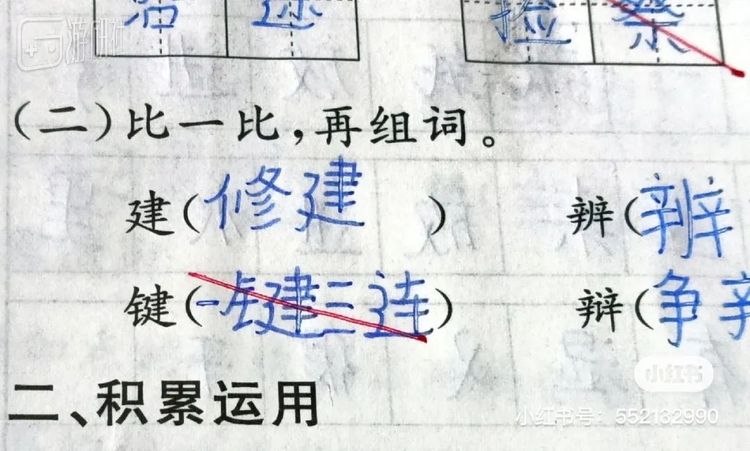 游研社
迹
捡 察
(二)比一比,再组词。
建(修建) 辨(辨
键(一键三连) 辩(争辩
二、积累运用
小红书
小红书号:552132990